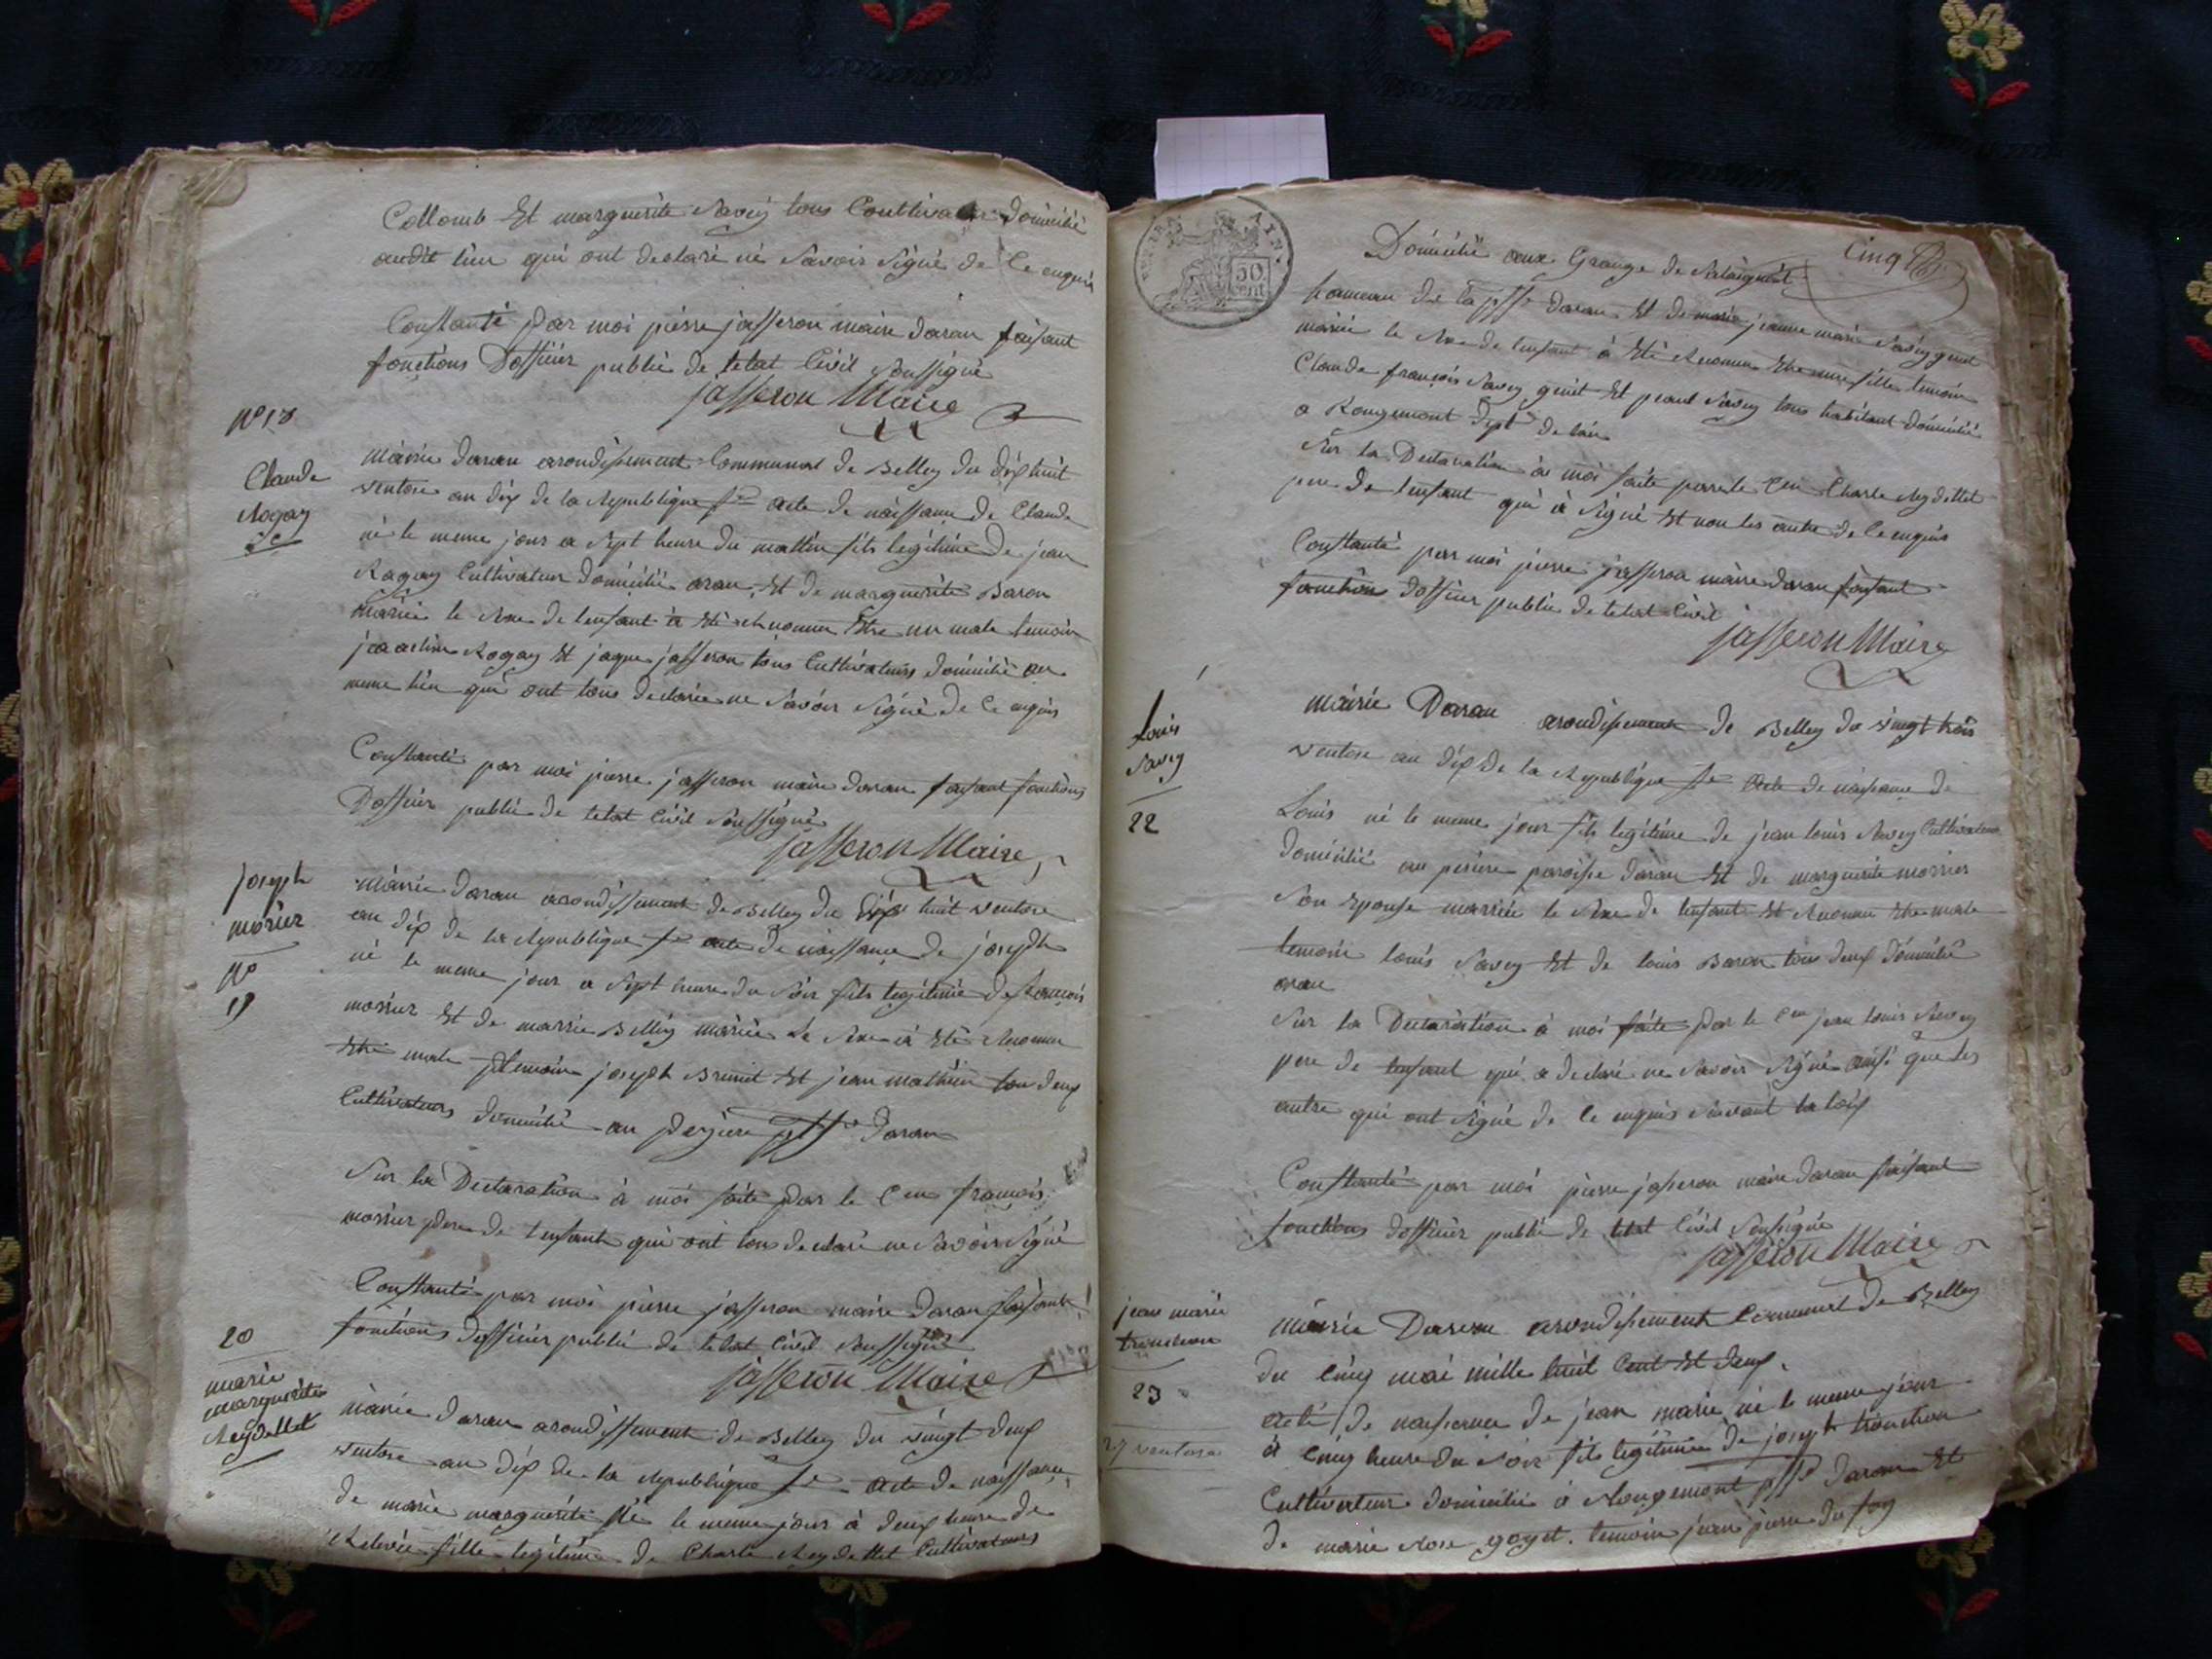 Collomb Et marguerite Savey tous Coultivateur domicilié
audit lieu qui ont declaré ne Savoir Signé de Ce enquis
Constanté par moi pierre jasseron maire daran faisant
fonctions Dofficier public de letat Civil Soussigné
jasseron Maire
N° 18
Claude
Rogay
Mairie daran arondissement Communal de Belley du dix huit
ventose an dix de la Republique fse acte de naissance de Claude
né le meme jour a Sept heure du mattin fils legitime de jean
Rogay Cultivateur domicilié aran, Et de marguerite Baron
mariée le Sexe de lenfant à Eté reconnu Etre un male temoin
Rogay Et jaque jasseron tous Cultivateurs domicilié au
meme lieu qui ont tous declarée ne Savoir Signé de Ce enquis
Constanté par moi pierre jasseron maire daran faisant fonctions
Dofficier public de letat Civil Soussigné
jasseron Maire
joseph
morier
N°
19
mairie daran arondissement de Belley du Dix huit ventose
an dix de la Republique fse acte de naissance de joseph
né le meme jour a Sept heure du Soir fils legitime de francois
morier Et de marrie Belley mariée Le Sexe à Eté Reconnu
Etre male temoin joseph Brunet Et jean mathieu tou deux
Cultivateurs domicilié au perjere psse daran
Sur la Declaration à moi faite par le Cen francois
morier pere de lenfant qui ont tous declaré ne Savoir Signé
Constanté par moi pierre jasseron maire daran faisant
fonctions dofficier public de letat Civil Soussigné
jasseron Maire
20
marie
marguerite
Reydellet
mairie daran arondissement de Belley du vingt deux
ventose an dix de la Republique fse acte de naissance
de marie marguerite Né le meme jour à deux heure de
Relevée fille legitime de Charle Reydellet Cultivateurs
Cinq
50
cent
Domicilié aux Grange de
hameau de la psse daran Et de marie jeanne marie Savey guiet
mariée le Sexe de lenfant à Eté Reconnu Etre une fille temoin
Claude françois Savey guiet Et Savey tous habitant domicilié
a Rougemont dept de lain
Sur la Declaration à moi faite par le Cen Charle Reydellet
pere de lenfant qui à Signé Et non les autre de Ce enquis
Constanté par moi pierre jasseron maire daran faisant
fonctions dofficier public de letat Civil
jasseron Maire
Louis
Savey
22
mairie Daran arondissement de Belley du vingt trois
ventose an dix de la Republique fse Acte de naissance de
Louis né le meme jour fils legitime de jean louis Savey Cultivateur
domicilié au perjere paroisse daran Et de marguerite morier
Son Epouse mariée le Sexe de lenfant Et Reconnu Etre male
temoin louis Savey Et de louis Baron tous deux domicilié
aran
Sur la Declaration à moi faite par le Cen jean louis Savey
pere de lenfant qui a declaré ne Savoir Signé ainsi que les
autre qui ont Signé de Ce enquis Suivant la loix
Constanté par moi pierre jasseron maire daran faisant
fonctions dofficier public de letat Civil Soussigné
jasseron Maire
jean marie
tronchon
23
27 ventose
mairie Daran arondissement Communal de Belley
du Cinq mai mille huit Cent Et deux.
acte de naissance de jean marie né le meme jour
à Cinq heure du Soir fils legitime de joseph tronchon
Cultivateur domicilié à Rougemont psse daran Et
de marie Rose goyet. temoin jean pierre du fay